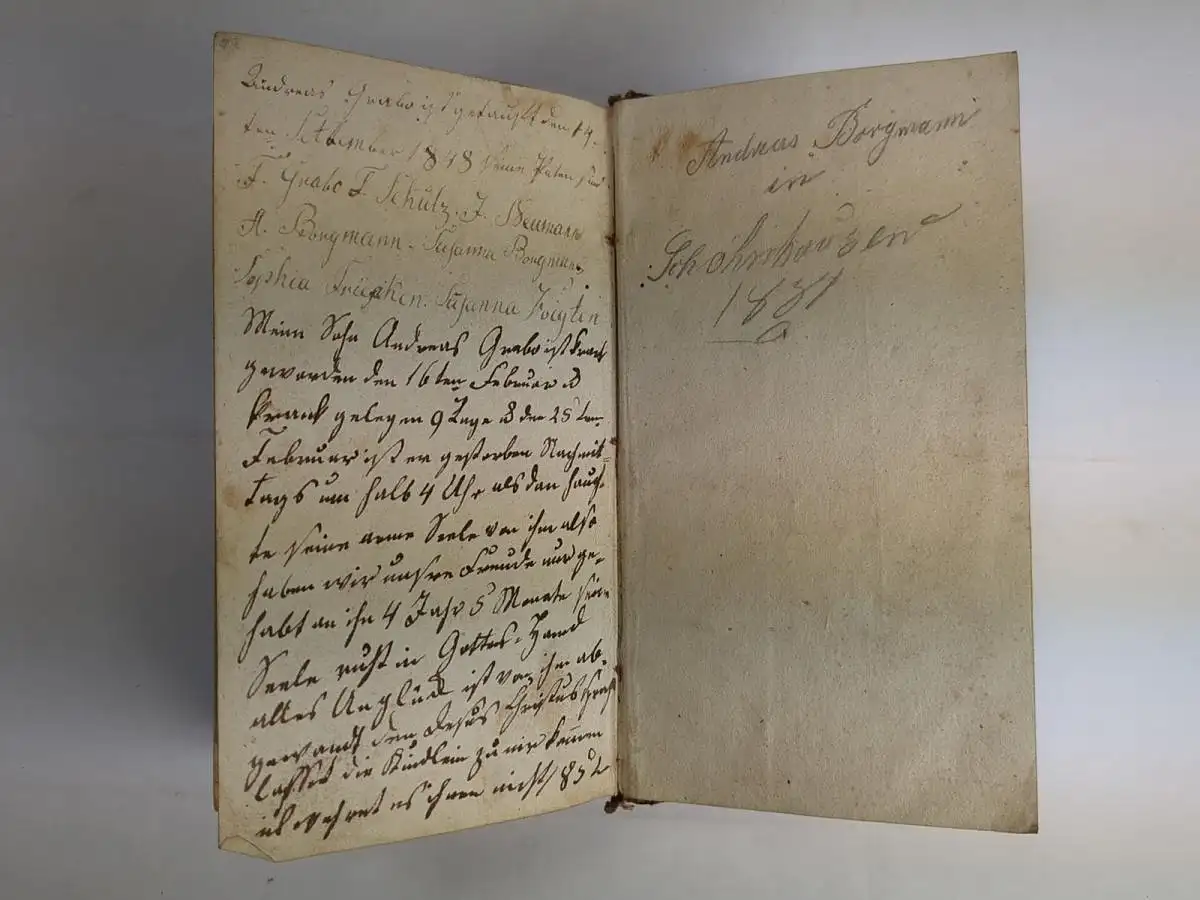 Andreas Grabo ist getauft den 14.
ten Setbember 1848 seine Paten sind
F. Grabo F. Schulz. J. Neumann
A. Borgmann. Susanna Borgmann,
Sophia Friepken. Susanna Voigten
Mein Sohn Andreas Grabo ist krank
geworden den 16ten Februar u
krank gelegen 9 Tage u den 25 ten
Februar ist er gestorben Nachmit-
tags um halb 4 Uhr als dan hauch-
te seine arme Seele von ihm also
haben wir unsre Freude nur ge-
habt an ihn 4 Jahr 5 Monate seine
Seele ruht in Gottes Hand
alles Unglück ist von ihm ab-
gewandt den Jesus Christus sprach
lasset die Kindlein zu mir kommen
u wehret es ihnen nicht
Andreas Borgmann
in
Schöhnhausen
1881